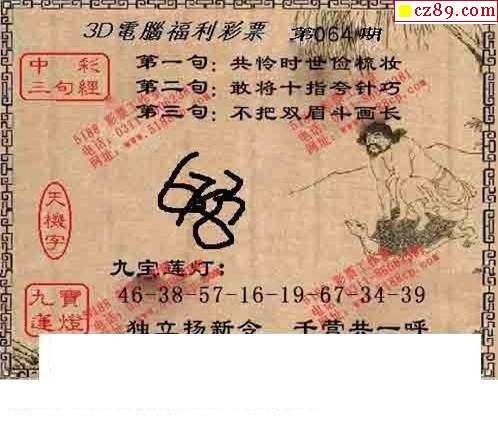 cz89.com
3D電腦福利彩票 第064期
中彩
三句經
第一句：共怜时世俭梳妆
第二句：敢将十指夸针巧
第三句：不把双眉斗画长
天機字
九宝莲灯：
九寶
蓮燈
46-38-57-16-19-67-34-39
独立扬新令 千营共一呼